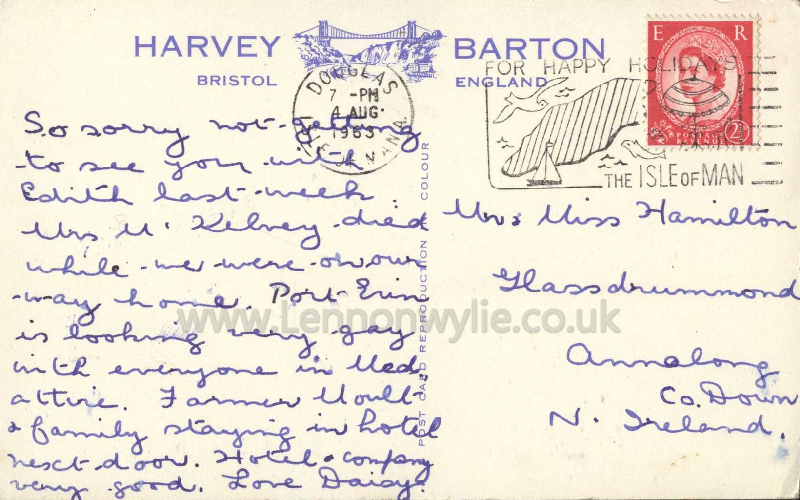 HARVEY BARTON
BRISTOL ENGLAND
DOUGLAS
7 - PM
4 AUG
1963
ISLE OF MAN
FOR HAPPY HOLIDAYS
THE ISLE OF MAN
E R
POSTAGE
REVENUE
2½
So sorry not getting
to see you with
Edith last week.
Mrs Mc Kelvey died
while we were on our
way home. Port Erin
is looking very gay
with everyone in Med.
attire. Farmer Moult
& family staying in hotel
next door. Hotel & company
very good. Love Daisy.
POST CARD REPRODUCTION COLOUR
Mrs & Miss Hamilton
Glassdrummond
Annalong
Co. Down
N. Ireland.
www.Lennonwylie.co.uk